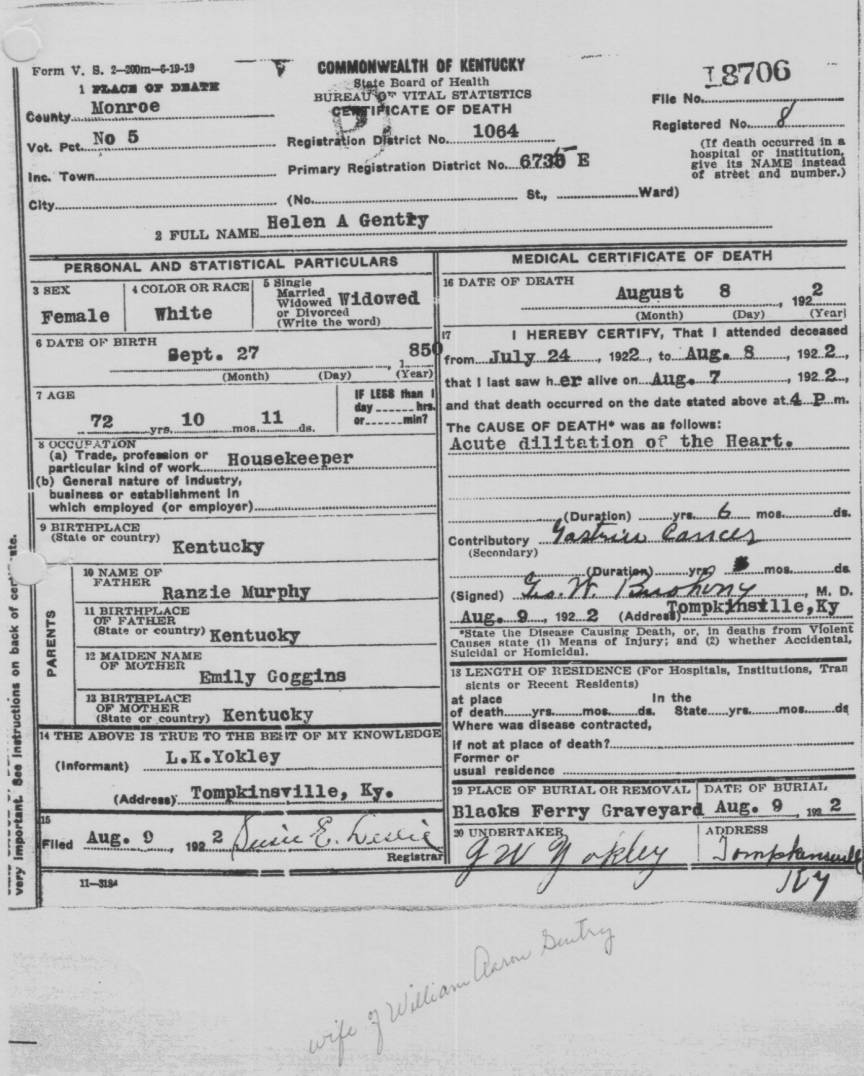 Form V. S. 2—200m—6-19-19
COMMONWEALTH OF KENTUCKY
State Board of Health
BUREAU OF VITAL STATISTICS
CERTIFICATE OF DEATH
18706
File No.
Registered No. 8
(If death occurred in a
hospital or institution,
give its NAME instead
of street and number.)
1 PLACE OF DEATH
County Monroe
Vot. Pct. No 5
Inc. Town
City
Registration District No. 1064
Primary Registration District No. 6735 E
(No. St., Ward)
2 FULL NAME Helen A Gentry
PERSONAL AND STATISTICAL PARTICULARS
3 SEX
Female
4 COLOR OR RACE
White
5 Single
Married
Widowed
or Divorced
(Write the word)
Widowed
6 DATE OF BIRTH
Sept. 27 , 1850
(Month) (Day) (Year)
7 AGE
72 yrs. 10 mos 11 ds.
IF LESS than 1
day hrs.
or min?
8 OCCUPATION
(a) Trade, profession or
particular kind of work Housekeeper
(b) General nature of industry,
business or establishment in
which employed (or employer)
9 BIRTHPLACE
(State or country)
Kentucky
PARENTS
10 NAME OF
FATHER
Ranzie Murphy
11 BIRTHPLACE
OF FATHER
(State or country) Kentucky
12 MAIDEN NAME
OF MOTHER
Emily Goggins
13 BIRTHPLACE
OF MOTHER
(State or country) Kentucky
14 THE ABOVE IS TRUE TO THE BEST OF MY KNOWLEDGE
(Informant) L.K.Yokley
(Address) Tompkinsville, Ky.
15
Filed Aug. 9 , 1922 Susie E. Leslie
Registrar
11—3184
MEDICAL CERTIFICATE OF DEATH
16 DATE OF DEATH
August 8 , 1922
(Month) (Day) (Year)
17
I HEREBY CERTIFY, That I attended deceased
from July 24 , 1922, to Aug. 8 , 1922,
that I last saw her alive on Aug. 7 , 1922,
and that death occurred on the date stated above at 4 P m.
The CAUSE OF DEATH* was as follows:
Acute dilitation of the Heart.
(Duration) yrs. 6 mos. ds.
Contributory Gastric Cancer
(Secondary)
(Duration) yrs mos ds
(Signed) Geo. W. Bushong , M. D.
Aug. 9 , 1922 (Address) Tompkinsville,Ky
*State the Disease Causing Death, or, in deaths from Violent
Causes state (1) Means of Injury; and (2) whether Accidental,
Suicidal or Homicidal.
18 LENGTH OF RESIDENCE (For Hospitals, Institutions, Tran
sients or Recent Residents)
at place In the
of death yrs. mos. ds. State yrs. mos. ds
Where was disease contracted,
if not at place of death?
Former or
usual residence
19 PLACE OF BURIAL OR REMOVAL
Blacks Ferry Graveyard
DATE OF BURIAL
Aug. 9 , 1922
20 UNDERTAKER
J W Yokley
ADDRESS
Tompkinsville
Ky
very important. See instructions on back of
wife of William Aaron Gentry